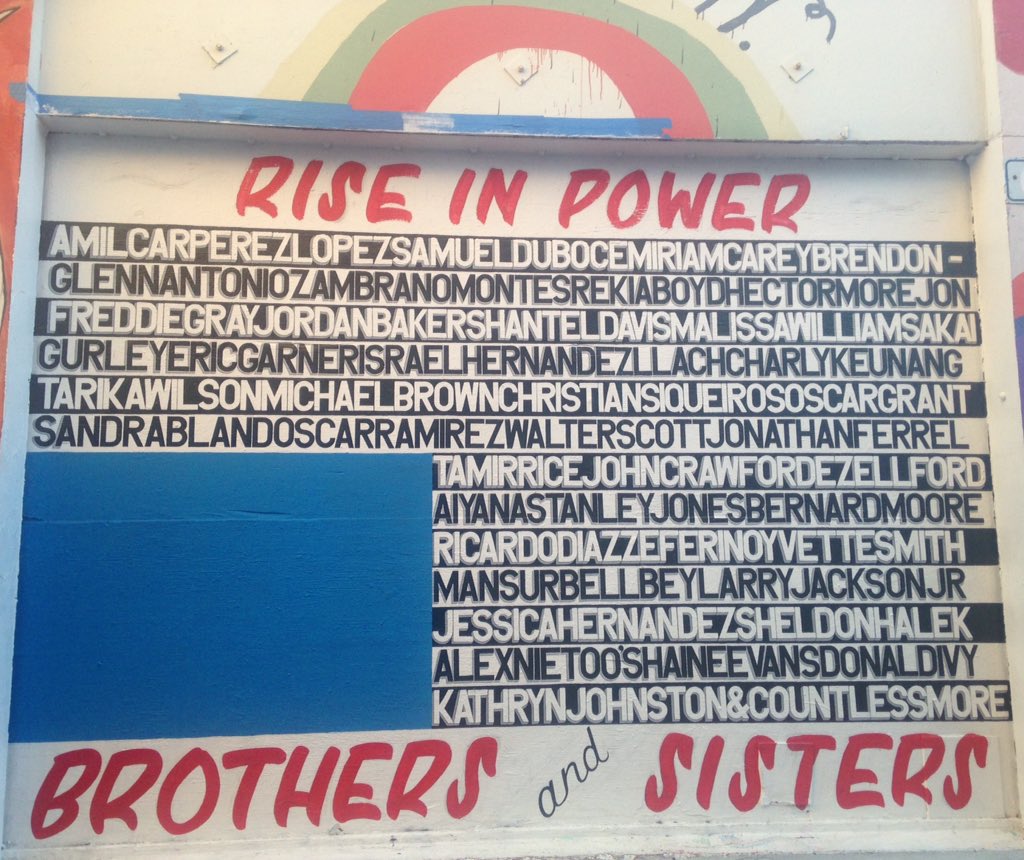 RISE IN POWER
AMILCARPEREZLOPEZSAMUELDUBOCEMIRIAMCAREYBRENDON-
GLENNANTONIOZAMBRANOMONTESREKIABOYDHECTORMOREJON
FREDDIEGRAYJORDANBAKERSHANTELDAVISMALISSAWILLIAMSAKAI
GURLEYERICGARNERISRAELHERNANDEZLLACHCHARLYKEUNANG
TARIKAWILSONMICHAELBROWNCHRISTIANSIQUEIROSOSCARGRANT
SANDRABLANDOSCARRAMIREZWALTERSCOTTJONATHANFERREL
TAMIRRICEJOHNCRAWFORDEZELLFORD
AIYANASTANLEYJONESBERNARDMOORE
RICARDODIAZZEFERINOYVETTESMITH
MANSURBELLBEYLARRYJACKSONJR
JESSICAHERNANDEZSHELDONHALEK
ALEXNIETOO'SHAINEEVANSDONALDIVY
KATHRYNJOHNSTON&COUNTLESSMORE
BROTHERS and SISTERS